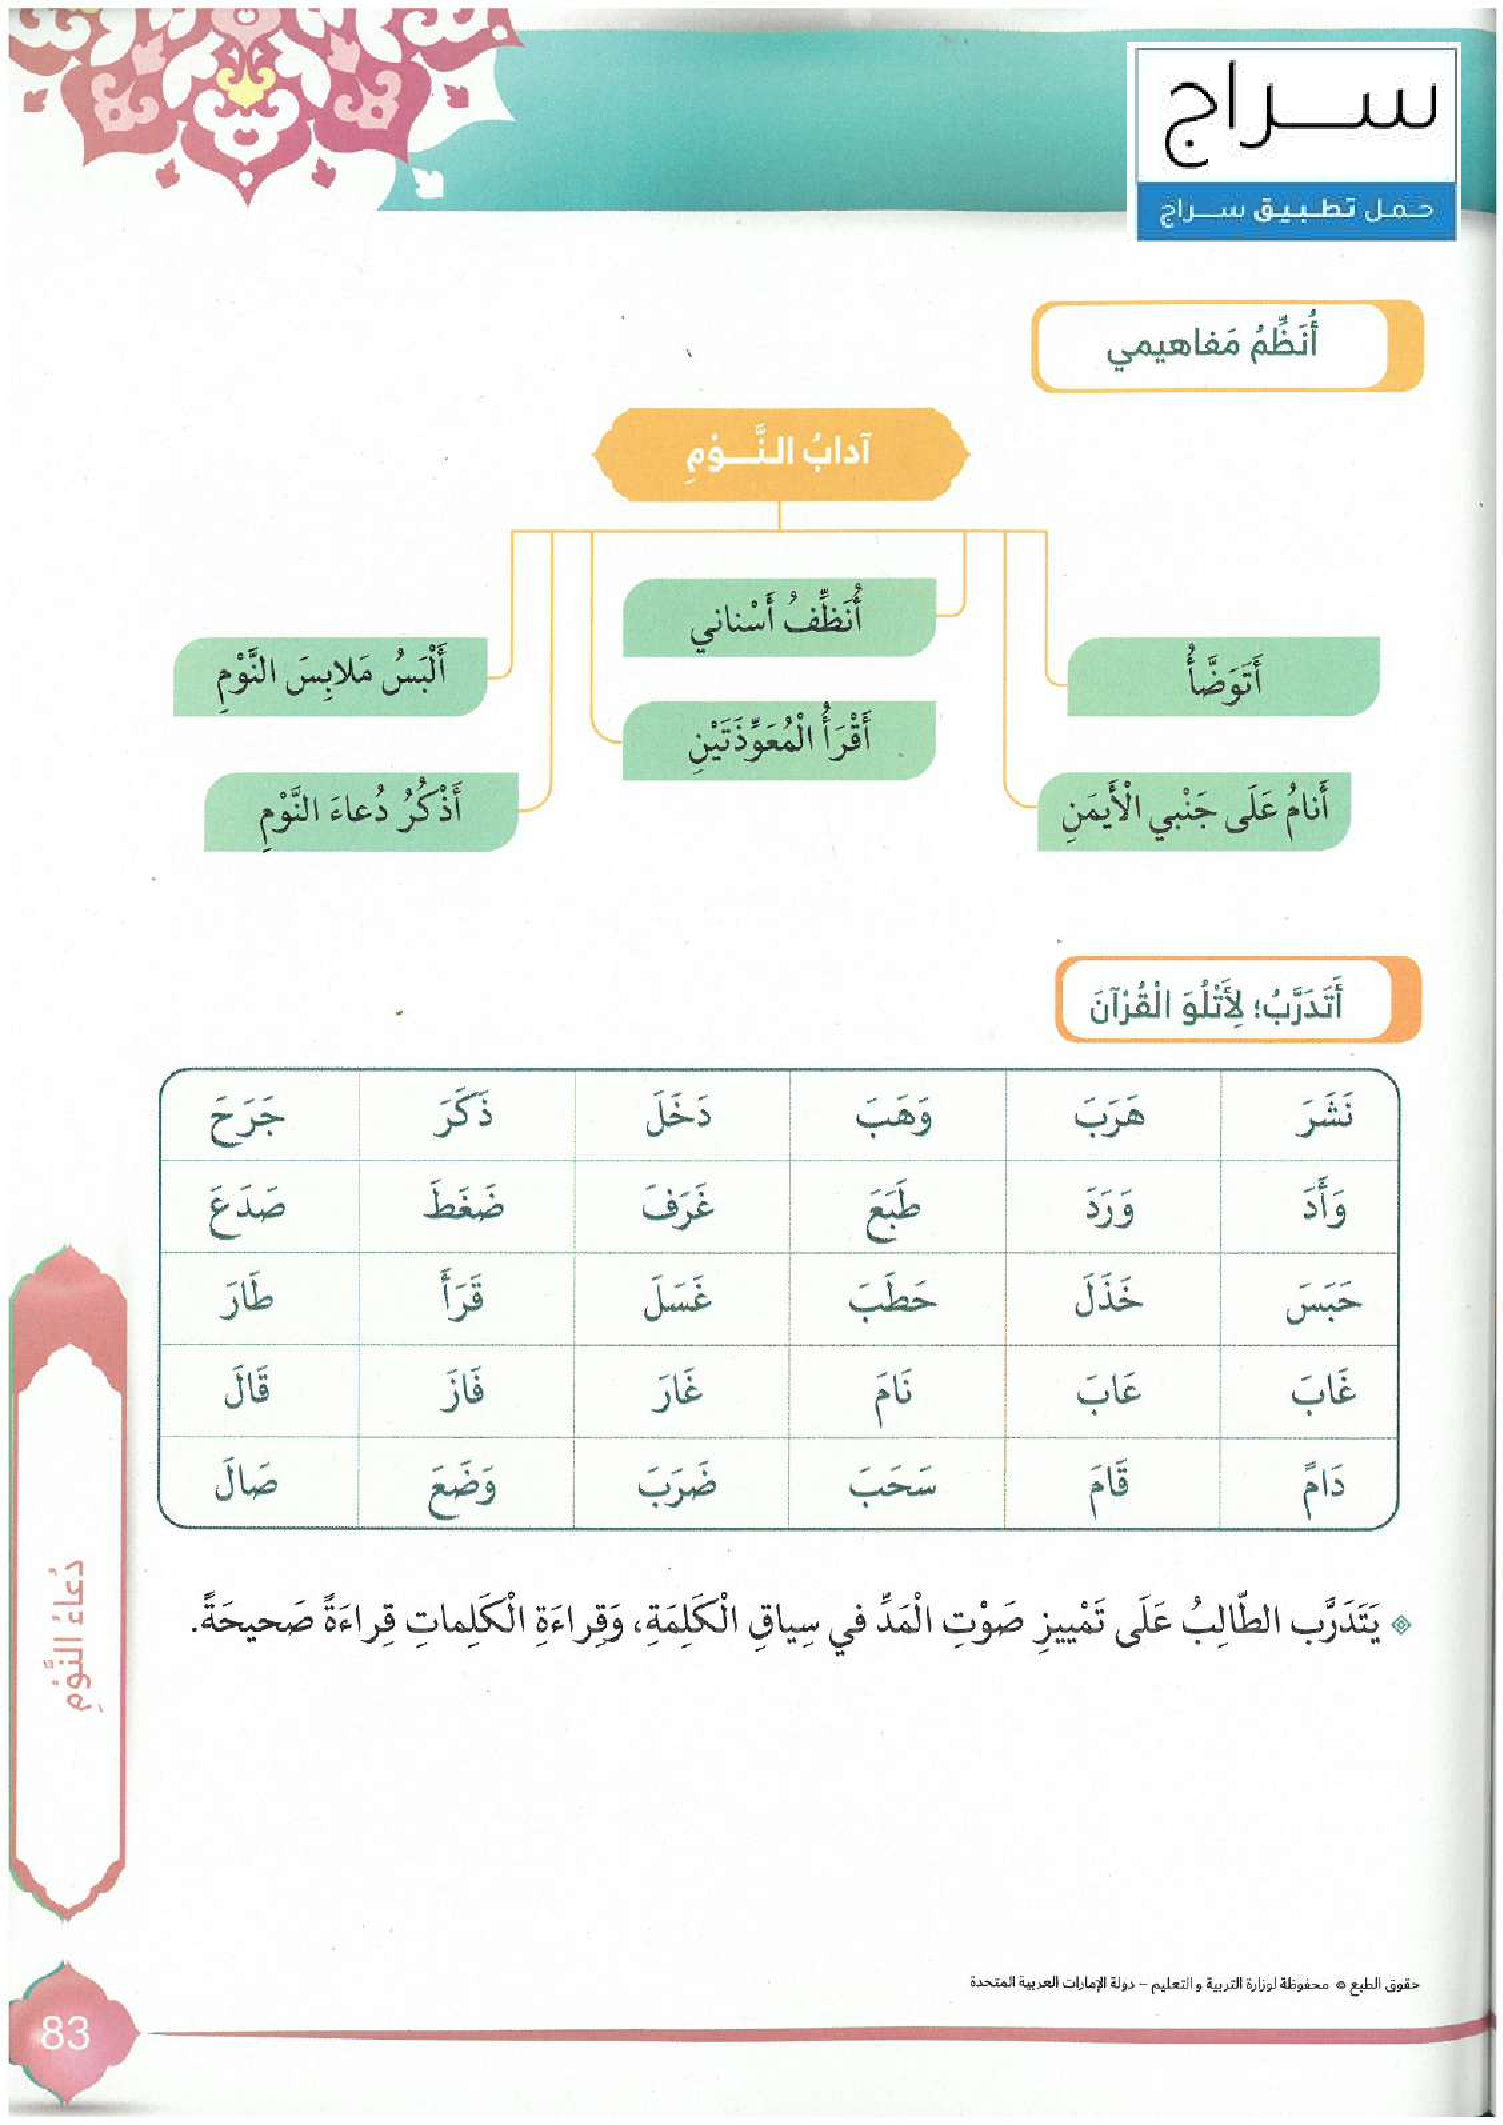 سراج
حمل تطبيق سراج
أُنَظِّمُ مَفاهيمي
آدابُ النَّوْمِ
أُنَظِّفُ أَسْناني
أَتَوَضَّأُ
أَلْبَسُ مَلابِسَ النَّوْمِ
أَقْرَأُ الْمُعَوِّذَتَيْنِ
أَنامُ عَلَى جَنْبي الْأَيمَنِ
أَذْكُرُ دُعاءَ النَّوْمِ
أَتَدَرَّبُ؛ لِأَتْلُوَ الْقُرْآنَ
نَشَرَ هَرَبَ وَهَبَ دَخَلَ ذَكَرَ جَرَحَ
وَأَدَ وَرَدَ طَبَعَ غَرَفَ ضَغَطَ صَدَعَ
حَبَسَ خَذَلَ حَطَبَ غَسَلَ قَرَأَ طَارَ
غَابَ عَابَ نَامَ غَارَ فَازَ قَالَ
دَامَ قَامَ سَحَبَ ضَرَبَ وَضَعَ صَالَ
يَتَدَرَّب الطّالِبُ عَلَى تَمْييزِ صَوْتِ الْمَدِّ في سِياقِ الْكَلِمَةِ، وَقِراءَةِ الْكَلِماتِ قِراءَةً صَحيحَةً.
دُعاءُ النَّوْمِ
حقوق الطبع © محفوظة لوزارة التربية و التعليم – دولة الإمارات العربية المتحدة
83